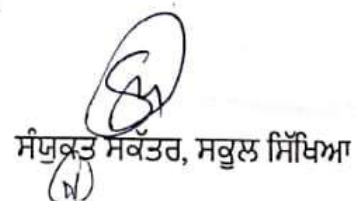 ਸੰਯੁਕਤ ਸਕੱਤਰ, ਸਕੂਲ ਸਿੱਖਿਆ